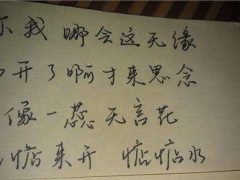 不我 哪会这无缘
开了啊才来思念
像一蕊无言花
惦来开 惦惦水